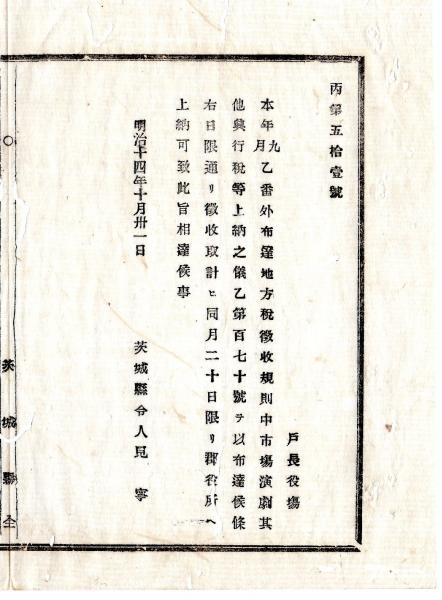 丙第五拾壹號
戸長役塲
本年九月乙番外布達地方税徴收規則中市塲演劇其
他興行税等上納之儀乙第百七十號ヲ以布達候條
右日限通リ徴收取計ヒ同月二十日限リ郡役所ヘ
上納可致此旨相達候事
明治十四年十月卅一日
茨城縣令人見寧
茨城縣